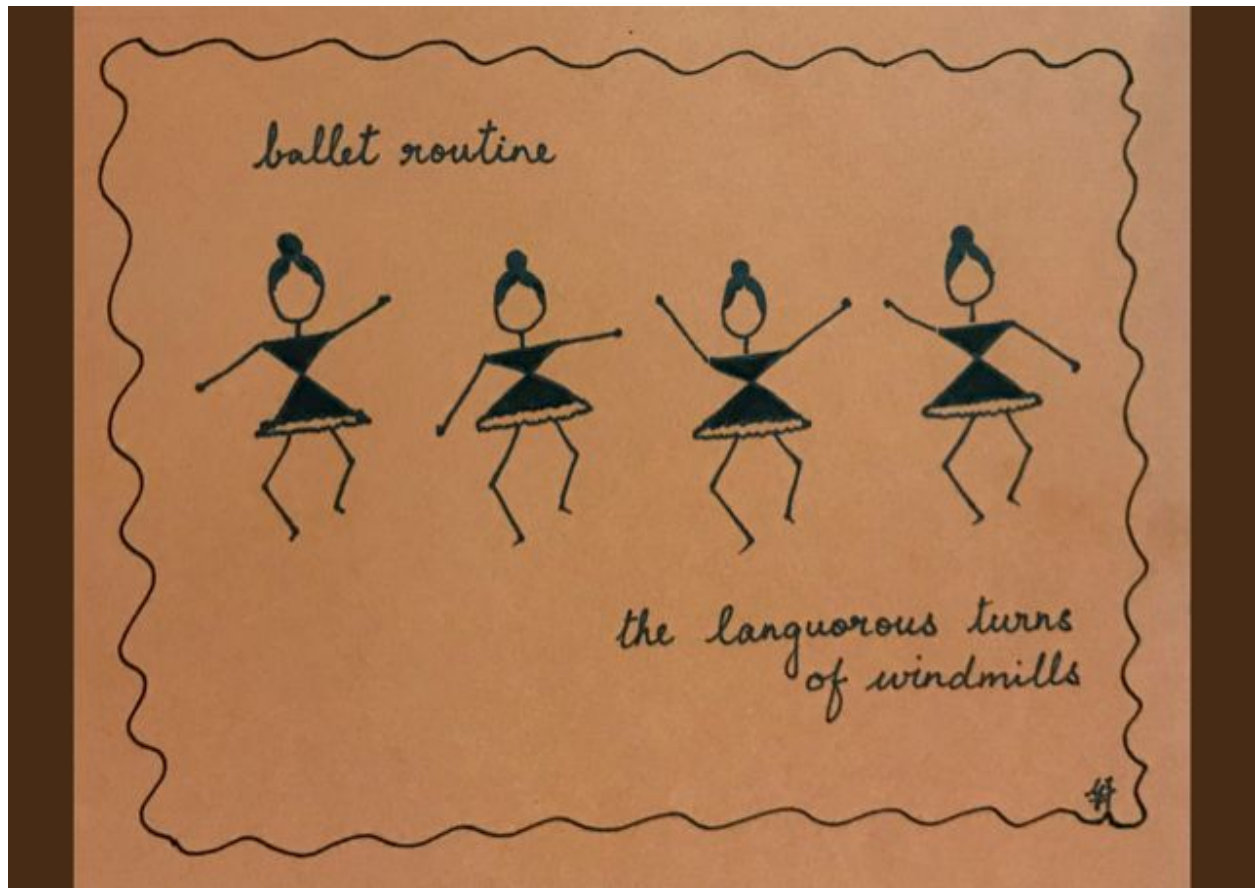 ballet routine
the languorous turns
of windmills